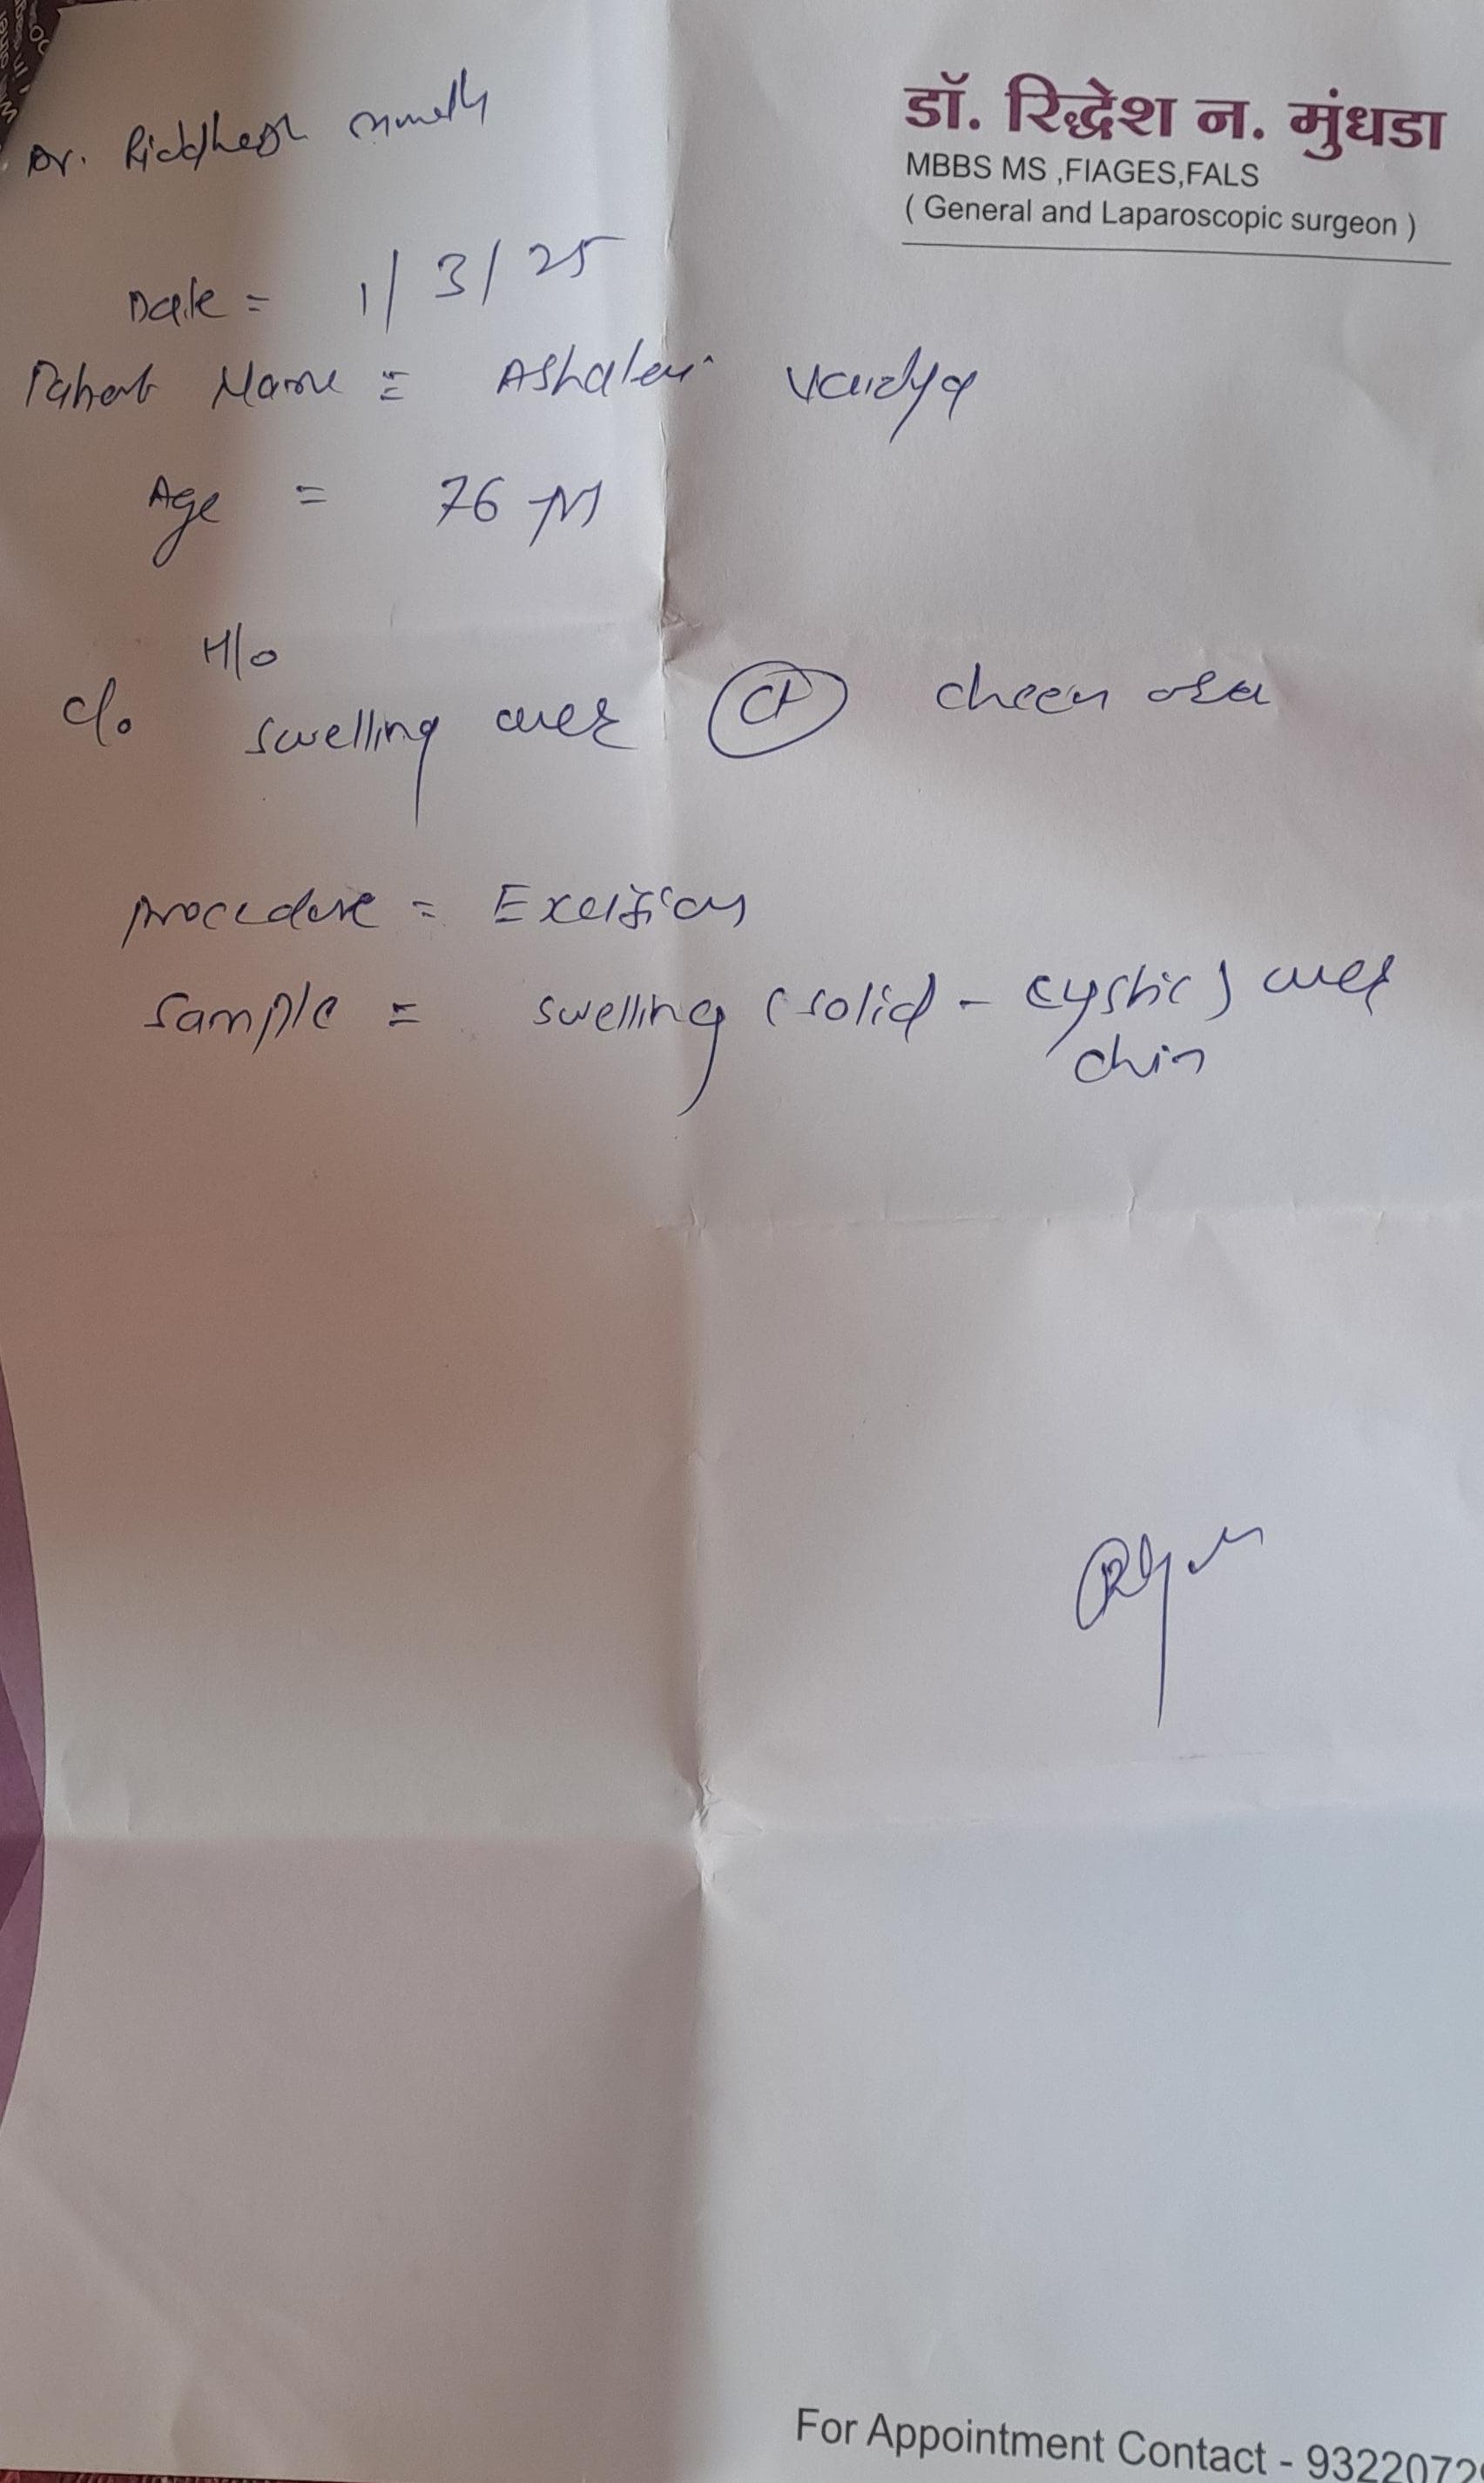 डॉ. रिद्धेश न. मुंधडा
MBBS MS ,FIAGES,FALS
( General and Laparoscopic surgeon )
Dr. Riddhesh
Date = 1/3/25
Patient Name = Ashalen Vaidya
Age = 76 yrs
H/o
c/o swelling over chin
procedure = Excision
sample = swelling (solid - cystic) over
chin
For Appointment Contact - 9322072